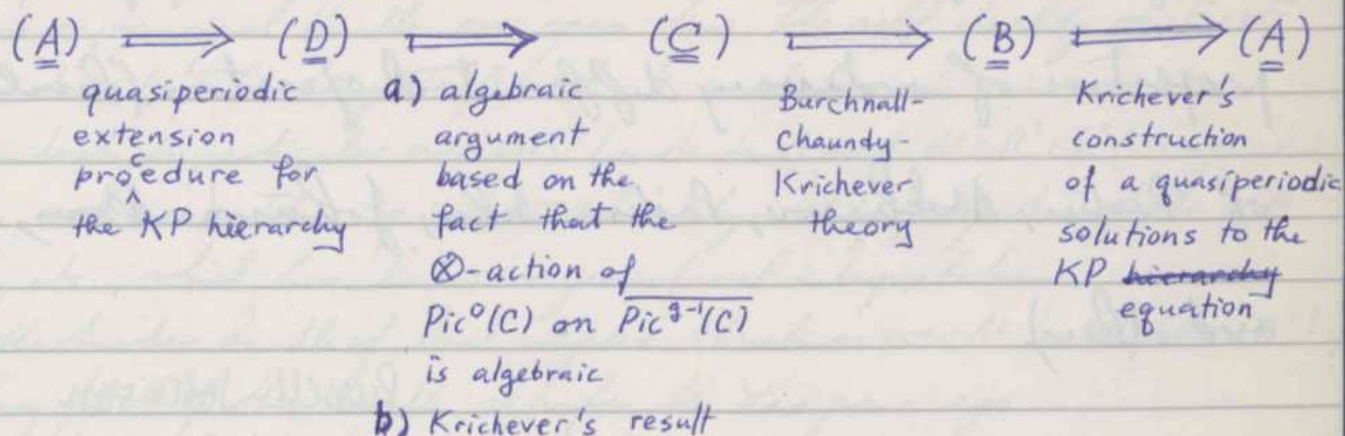 (A) ⟹ (D) ⟹ (C) ⟹ (B) ⟹ (A)
quasiperiodic
extension
procedure for
the KP hierarchy
a) algebraic
argument
based on the
fact that the
⊗-action of
Pic⁰(C) on \overline{Pic^{g-1}(C)}
is algebraic
b) Krichever's result
Burchnall-
Chaundy-
Krichever
theory
Krichever's
construction
of a quasiperiodic
solutions to the
KP ~~hierarchy~~
equation